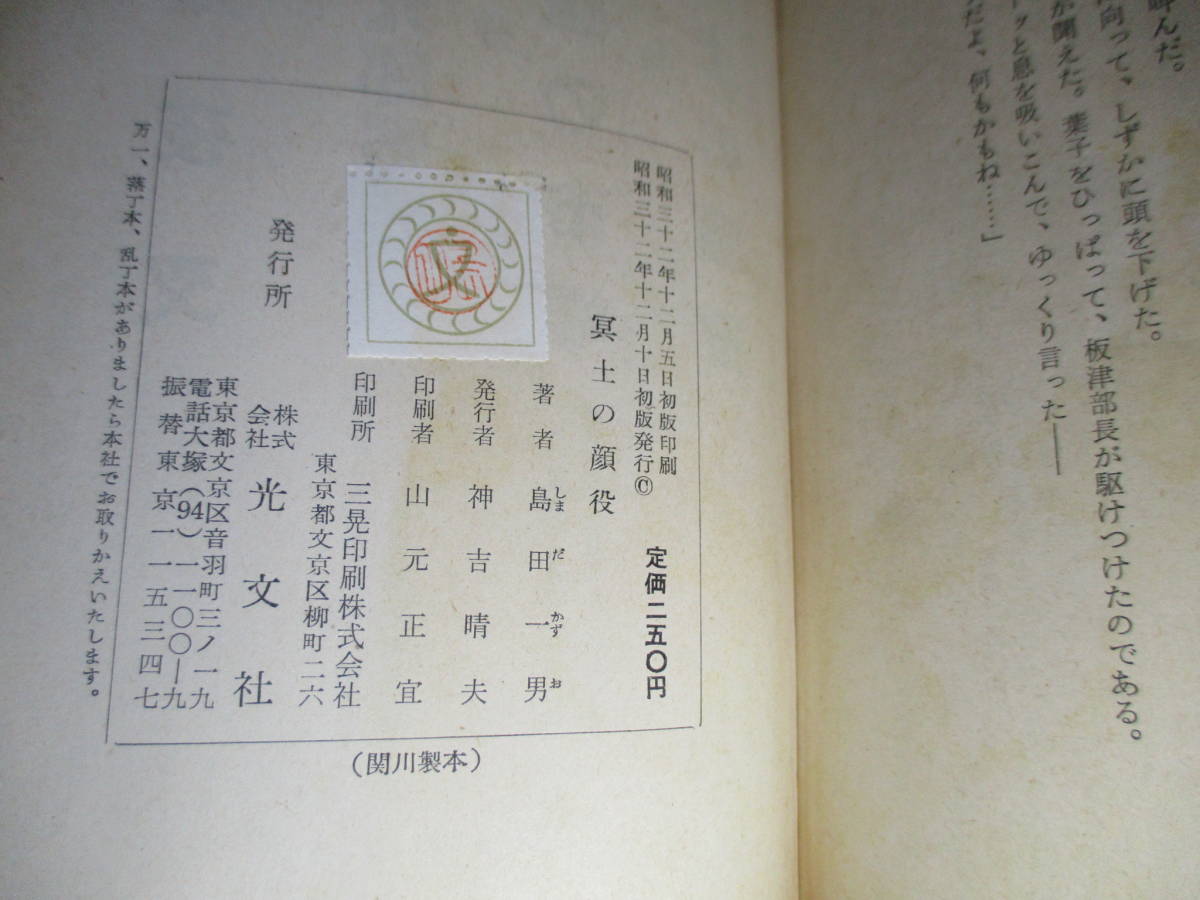 叫んだ。
向って、しずかに頭を下げた。
が聞えた。葉子をひっぱって、板津部長が駆けつけたのである。
ーッと息を吸いこんで、ゆっくり言った──
だよ、何もかもね……」
昭和三十二年十二月五日初版印刷
昭和三十二年十二月十日初版発行©
定価二五〇円
冥土の顔役
著者 島田一男
しまだかずお
発行者 神吉晴夫
印刷者 山元正宜
印刷所 三晃印刷株式会社
東京都文京区柳町二六
発行所 株式会社 光文社
東京都文京区音羽町三ノ一九
電話大塚(94)一一〇〇―九
振替東京一一五三四七
万一、落丁本、乱丁本がありましたら本社でお取りかえいたします。
(関川製本)